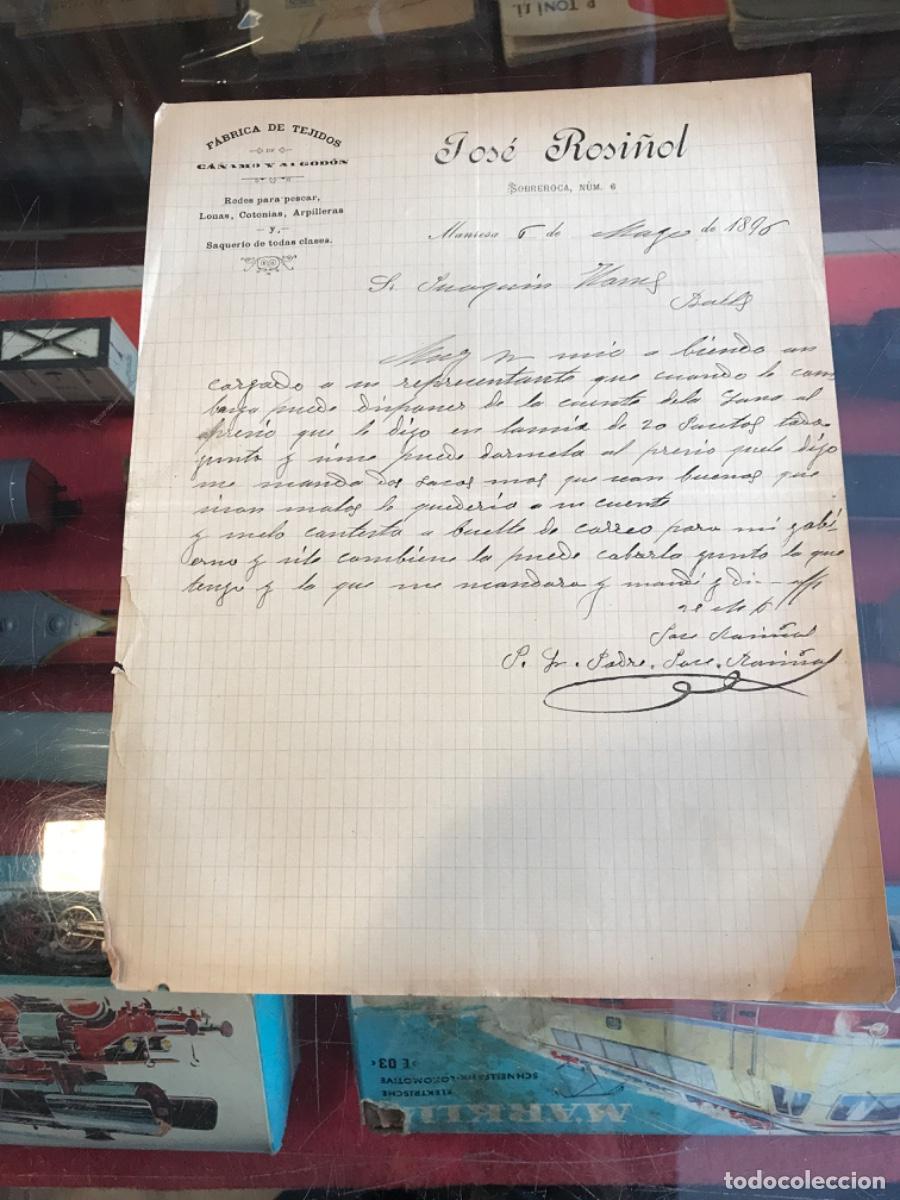 P. TONI
FÁBRICA DE TEJIDOS
DE
CÁÑAMO Y ALGODÓN
Redes para pescar,
Lonas, Cotonias, Arpilleras
y
Saquerío de todas clases.
José Rosiñol
SOBREROCA, NÚM. 6
Manresa 6 de Mayo de 1896
S. Juaquin
Muy Sr mio a biendo en
cargado a su representante que cuando le con
benga puede disponer de la cuenta dela Lana al
presio que le digo en la mia de 20
junto y sime puede darmela al presio quele digo
me manda dos sacos mas que sean buenos que
sison malos lo quederia a su cuenta
y melo contesta a buelta de correo para mi gobi-
erno y sile combiene la puede cobarla junto lo que
tengo y lo que me mandara y mande y di
Jose Rosiñol
P. Padre. Jose. Rosiñol
E 03
ELEKTRISCHE
SCHNELLZUG-LOKOMOTIVE
MÄRKLIN
todocoleccion